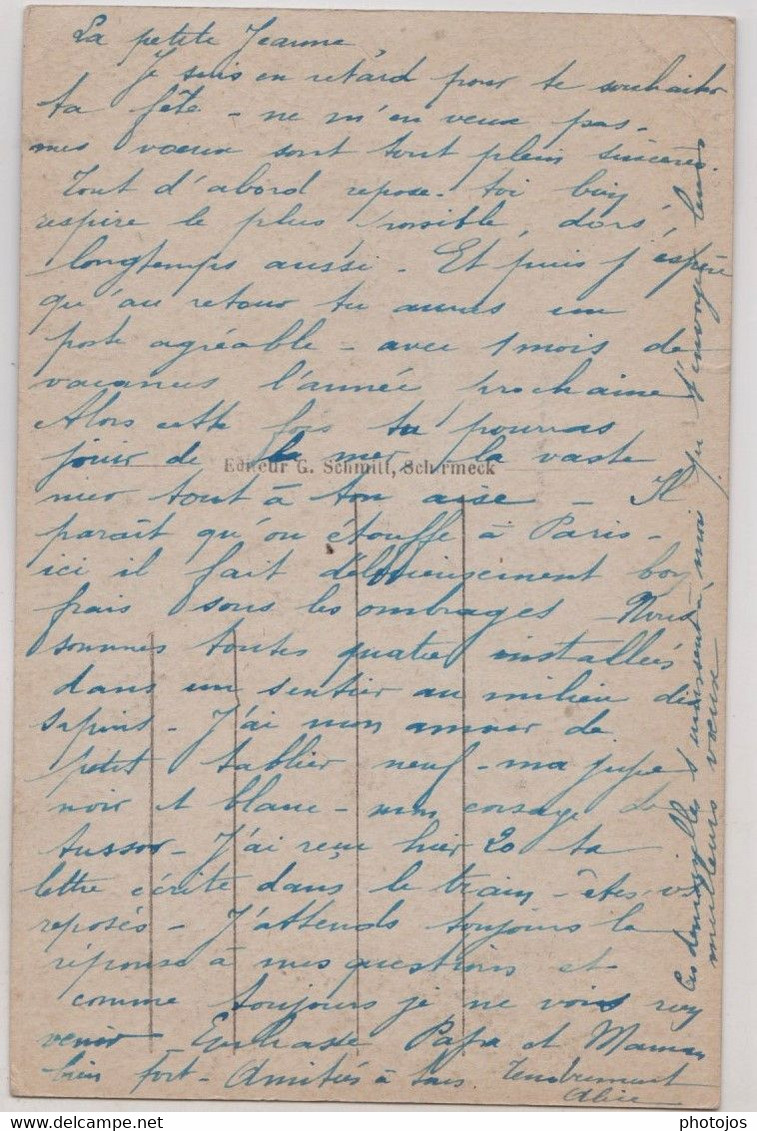 La petite Jeanne,
Je suis en retard pour te souhaiter
ta fête - ne m'en veux pas -
mes vœux sont tout plein sincères.
Tout d'abord repose-toi
respire le plus possible, dors
longtemps aussi - Et puis j'espère
qu'au retour tu auras un
poste agréable - avec 1 mois de
vacances l'année prochaine
Alors cette fois tu pourras
jouir de la mer la vaste
Editeur G. Schmitt, Schirmeck
mer tout à ton aise - Il
paraît qu'on étouffe à Paris -
ici il fait délicieusement
frais sous les ombrages - Nous
sommes toutes quatre installées
dans un sentier au milieu des
sapins - J'ai mon amour de
petit tablier neuf - ma jupe
noir et blanc - mon corsage de
tussor - J'ai reçu hier 20 ta
lettre écrite dans le train - êtes-vs
reposés - J'attends toujours la
réponse à mes questions et
comme toujours je ne vois
venir - Embrasse Papa et Maman
bien fort - Amitiés à tous. Tendrement
Alice
Ces demoiselles s'unissent à moi t'envoyer leurs
meilleurs vœux